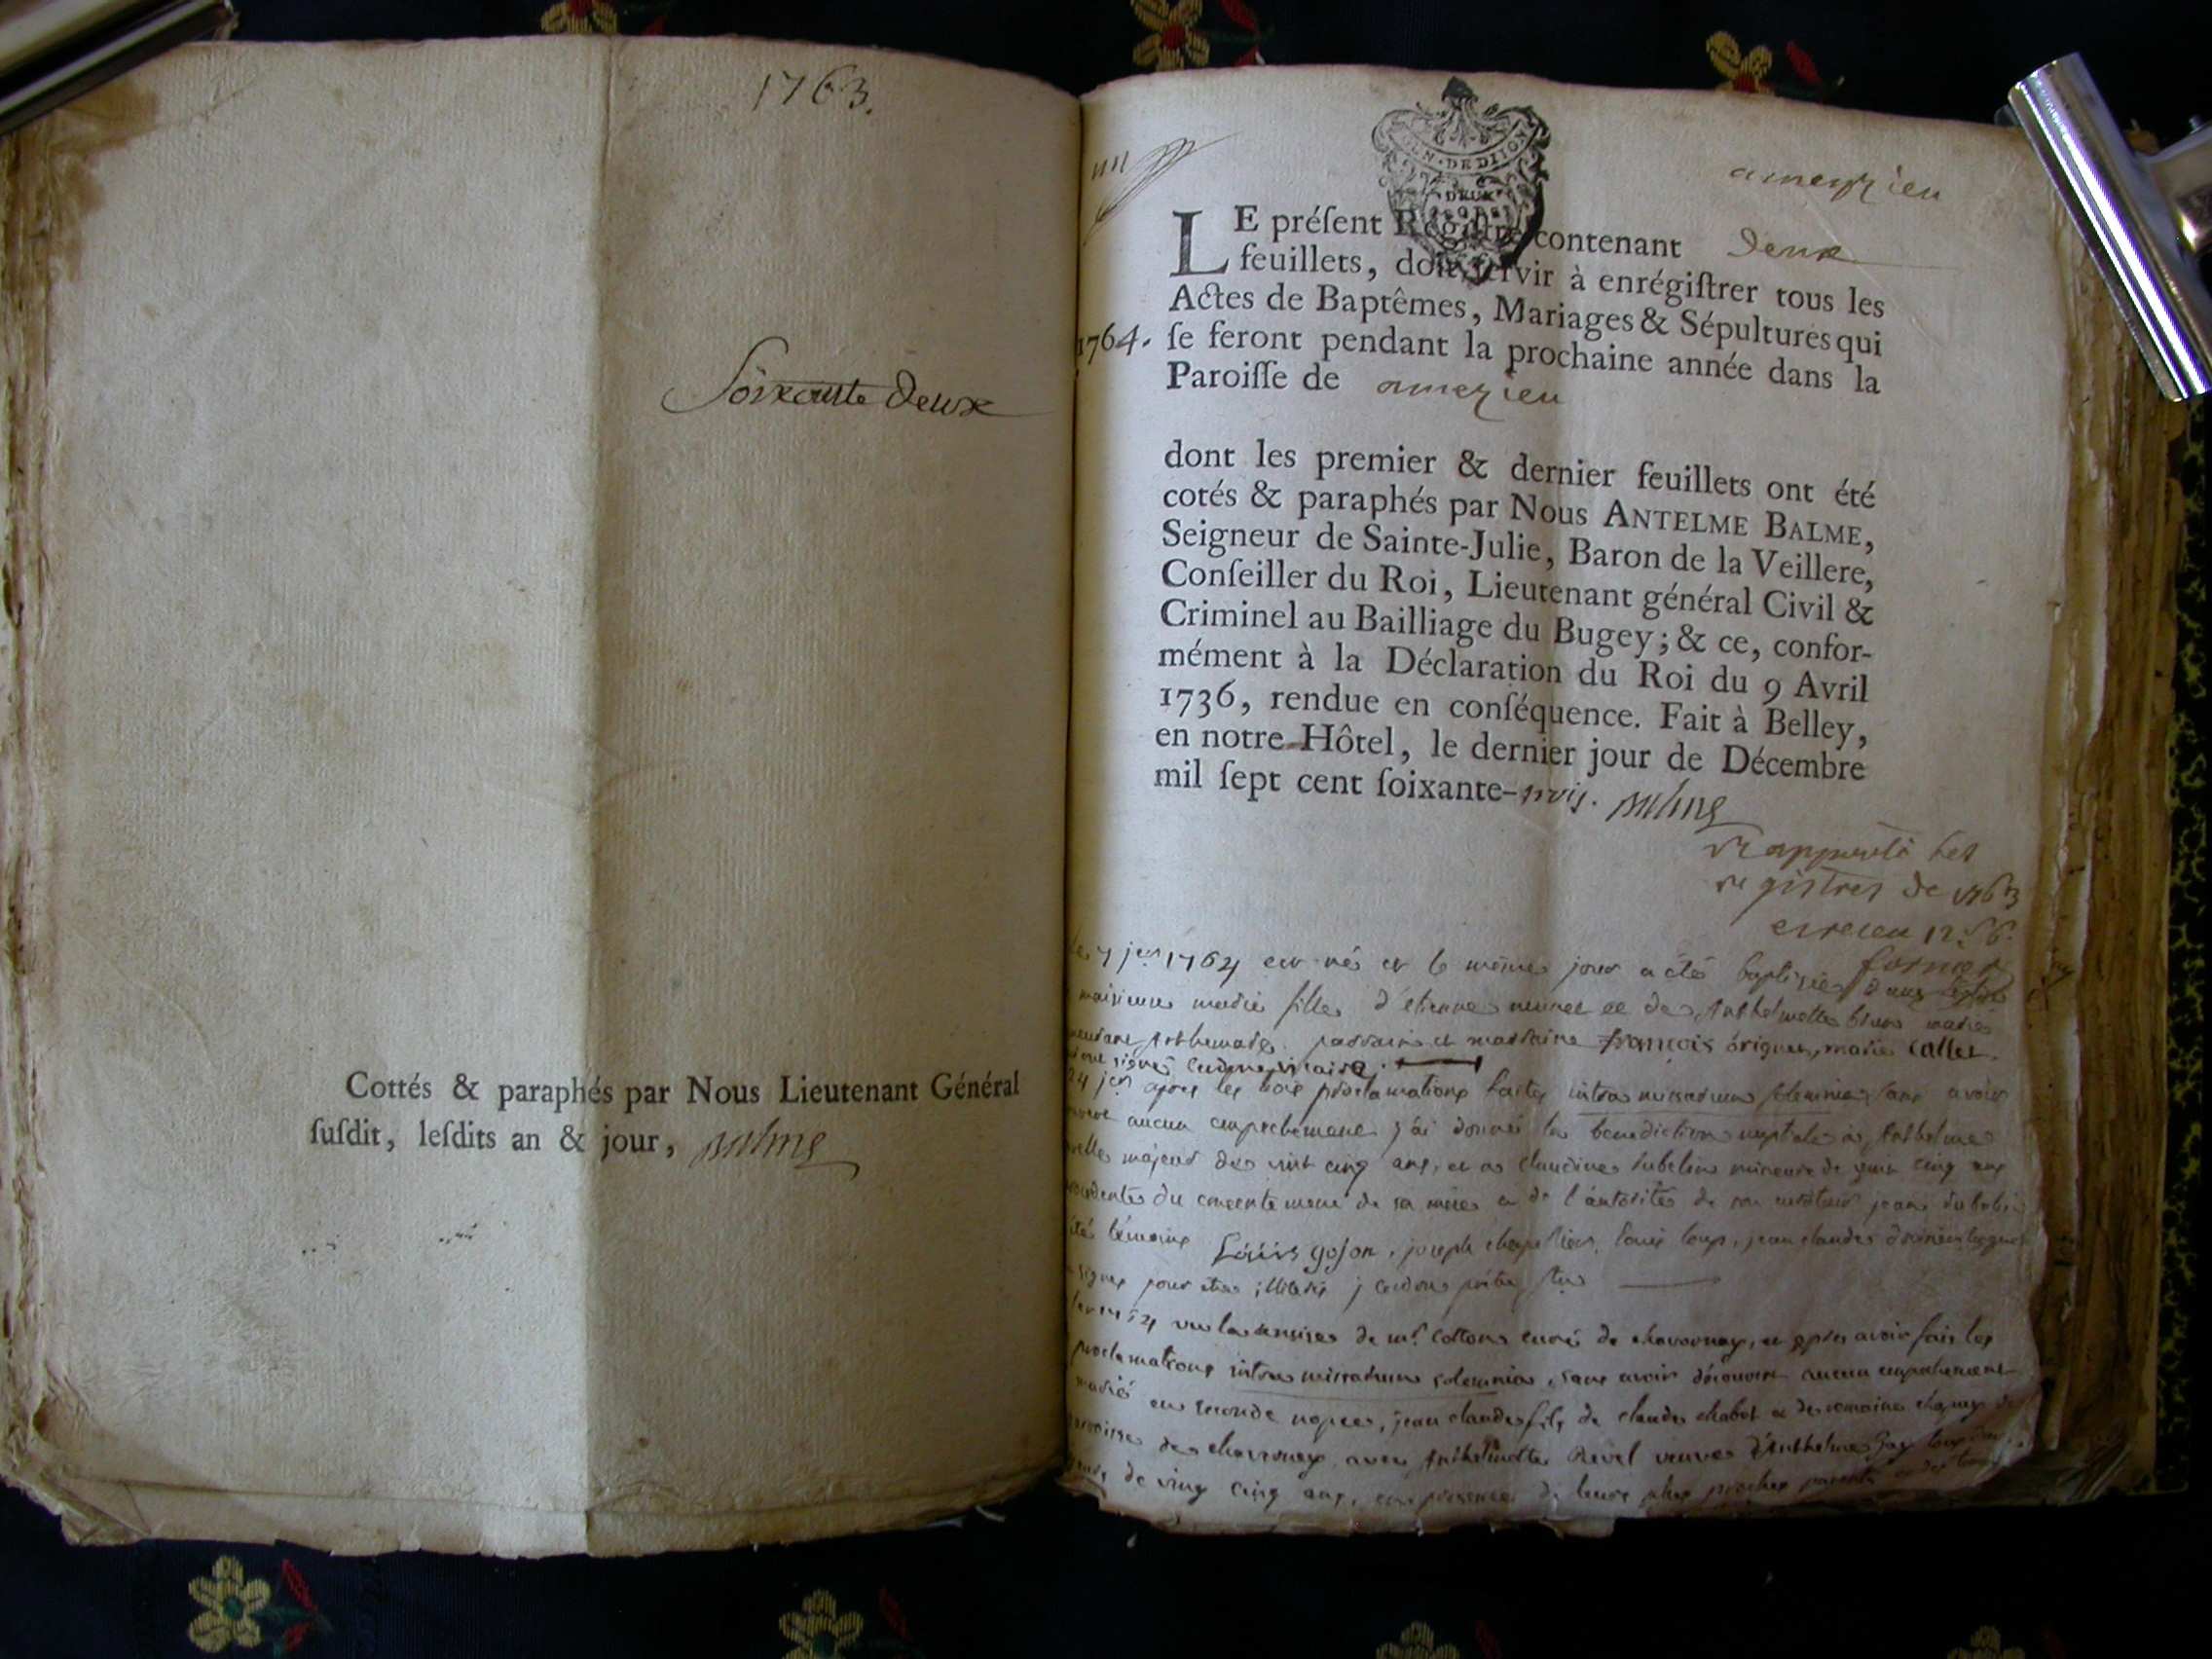 1763.
Soixante Deux
Cottés & paraphés par Nous Lieutenant Général
ſuſdit, leſdits an & jour, Balme
GEN. DE DIJON
DEUX
amezieu
LE préſent Regiſtre contenant Deux
feuillets, doit ſervir à enrégiſtrer tous les
Actes de Baptêmes, Mariages & Sépultures qui
1764. ſe feront pendant la prochaine année dans la
Paroiſſe de amezieu
dont les premier & dernier feuillets ont été
cotés & paraphés par Nous ANTELME BALME,
Seigneur de Sainte-Julie, Baron de la Veillere,
Conſeiller du Roi, Lieutenant général Civil &
Criminel au Bailliage du Bugey; & ce, confor-
mément à la Déclaration du Roi du 9 Avril
1736, rendue en conſéquence. Fait à Belley,
en notre Hôtel, le dernier jour de Décembre
mil ſept cent ſoixante-trois. Balme
rapporté les
registres de 1763
et receu 12 s 6
fornier
1764 est né et le même jour a été baptisée dans
marie fille d'etienne et de Anthelmette marié
parrain et marraine françois brigner, marie Callet.
signé Cudon vicaire.
24 jer apres les trois proclamations faites intra missarum solemnia sans avoir
aucun empechement j'ai donné la benediction nuptiale a Anthelme
majeur de vint cinq ans, et a claudine dubelin mineure de vint cinq ans
du consentement de sa mere et de l'autorité de son curateur jean dubelin
témoins Louis goJon, joseph chapellier, louis loup, jean claude
signé pour etre illiteré j cudon prêtre
vu la remise de mr. Cotton curé de chavornay, et apres avoir fait les
proclamations intra missarum solemnia, sans avoir découvert aucun empechement
marié en seconde nopces, jean claude fils de claude chabot et de romaine
paroisse de chavornay avec Anthelmette Revel veuve d'Anthelme Gay
de ving cinq ans, en presence de leurs plus proches parents